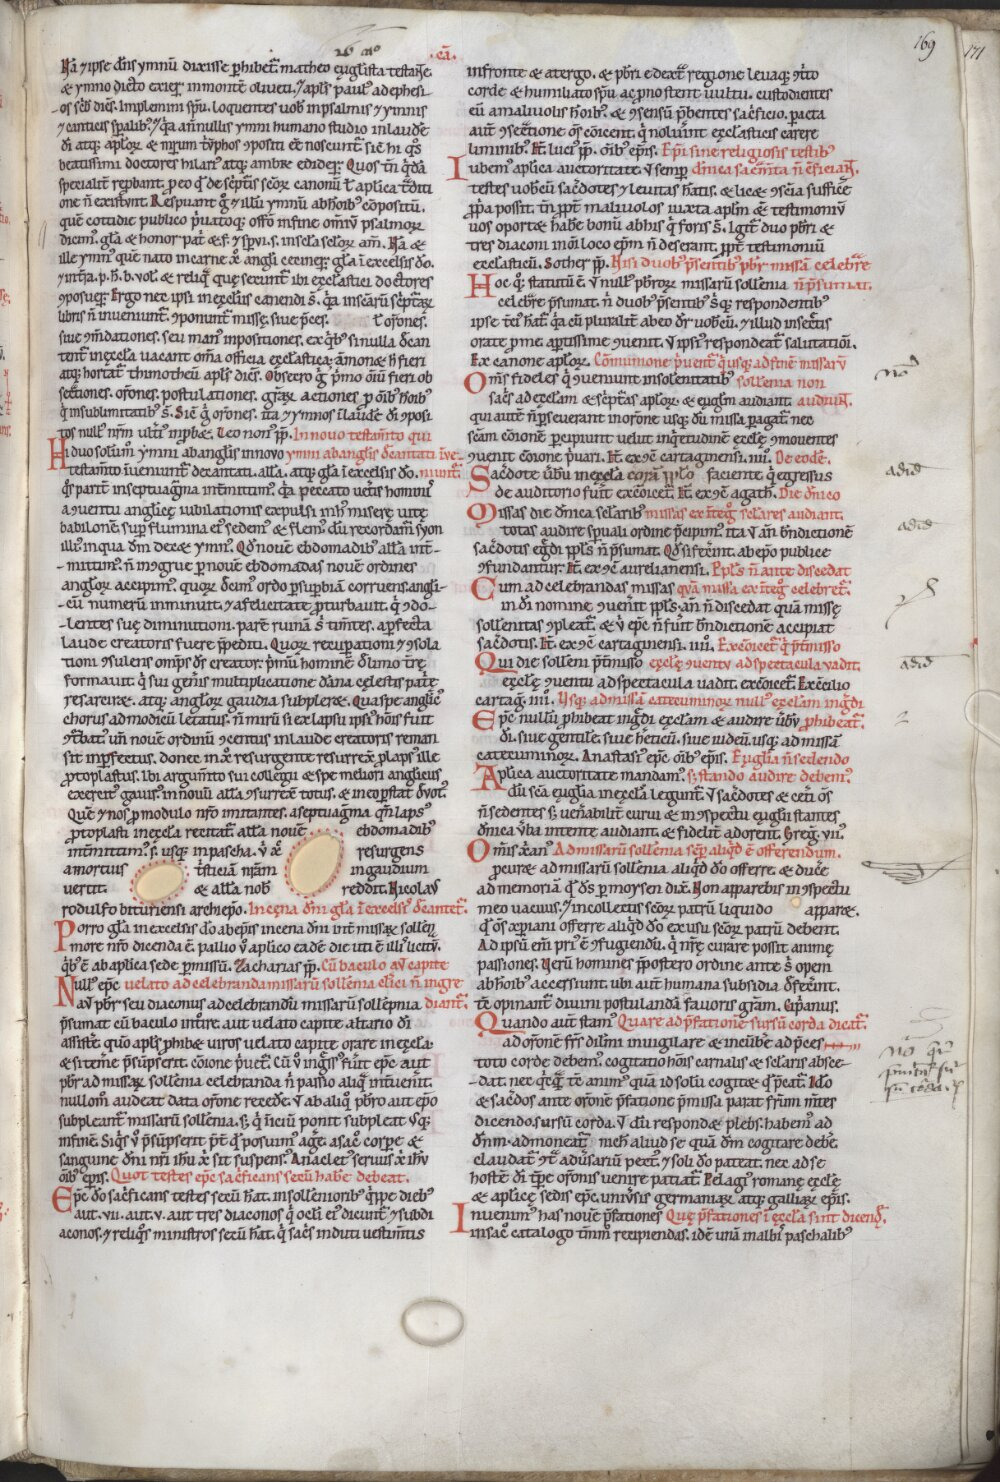 169
171
·eā·
Nā ⁊ ipse dn̄s ymnū dixisse ꝑhibet̄ matheo euglista testañte.
& ymno dicto exieꝝ inmontē oliueti. ⁊ apl̄s paul᾽ ad ephesi-
os sc̄bit dicēs. Implemini sp̄u. loquentes uob̄ inpsalmis ⁊ ymnis
⁊ canticis sp̄alib᾽. ⁊ q̇a nn̄ulli ymni humano studio inlaudē
dī atq; apl̄oꝝ & m̄r̄um t̄ph̄os ꝯpositi ēē noscunt̄ sic̄ hi q̇s
beatissimi doctores hilari᾽ atq; ambr̄s edideꝝ. Quos tn̄ q̇dā
specialit̄ reꝓbant. ꝓ eo q̇ de sc̄ptis sc̄oꝝ canonū ł aplica t̄diti
one n̄ existūnt. Respuant ḡ & illū ymnū abhoīb᾽ cōpositū.
quē cotidie publico p̄uatoq; offō infine om̄iū psalmoꝝ
dicim᾽. gl̄a & honor patⁱ & f. ⁊ sp̄ui s. insc̄la sc̄loꝝ am̄. Nā &
ille ymn᾽ que nato incarne xp̄o angl̄i cecineꝝ. gl̄a ī excelsis dō.
⁊ int̄ra. p. h. b. uol. & reliq̄ que secunt̄ ibi ęcclastici doctores
ꝯposueꝝ. Ergo nec ipsi inęcclīis canendi s̄. q̇a inscāꝝ sc̄pt̄aꝝ
libris n̄ inueniunt̄. ꝯponunt̄ missę. siue p̄ces. ł or̄ones.
siue ꝯm̄dationes. seu man᾽ inpositiones. ex q̇b᾽ si nulla dc̄an
tent̄ inęccla uacant om̄a officia ęcclastica. ām̄one& h̄ fieri
atq; hortat̄ thimotheū apl̄s dicēs. Obsecro ḡ p̄mo om̄iū fieri ob
secc̄tiones. or̄ones. postulationes. gr̄aꝝ actiones ꝓ om̄ib᾽ hoīb᾽
q̇ insublimitatib᾽ s̄. Sic̄ ḡ or̄ones. ita ⁊ ymnos ī laudē dī ꝯposi
tos null᾽ nr̄m ult̄i᾽ inꝓb&. Leo non᾽ pp̄. In nouo testam̄to qui
Hi duo solūm᾽ ymni abangl̄is innouo ymni abanglis dcantati īve-
testam̄to īueniunt̄ decantati. alla. atq; gl̄a ī excelsis dō. niunt̄.
q̄s parit̄ inseptuaḡma int̄mittim᾽. q̇a peccato uet̄is hominis
aꝯuentu anglicę iubilationis expulsi inh᾽ miserę uitę
babilonē sup̄ flumina ei᾽ sedem᾽ & flem᾽ dū recordam̄ syon
illi᾽ inqua dm̄ dec& ymn᾽. Qd̄ nouē ebdomadib᾽ alla int̄-
-mittim᾽. n̄ inꝯgrue ꝑ nouē ebdomadas nouē ordines
angl̄oꝝ accipim᾽. quoꝝ decim᾽ ordo ꝑ suꝑbiā corruens. angl̄i-
-cū numerū imminuit. ⁊ afelicitate ꝑturbauit. q̇ ꝯdo-
-lentes suę diminutioni. parē ruinā s̄ tim̄tes. aꝑfecta
laude creatoris fuere p̄pediti. Quoꝝ recuꝑationi ⁊ ꝯsola
tioni ꝯsulens om̄ps d̄s creator. p̄mū hominē d̄limo t̄rę
formauit. q̇ sui gen̄is multiplicatione dāna cęlestis pat̄ę
resarcir&. atq; angl̄oꝝ gaudia subpler&. Qua spe angl̄ic᾽
chorus admodicū letatus. n̄ mirū si ex lapsu ipsi᾽ hoīs fuit
ꝯt̄bat᾽. un̄ nouē ordinū ꝯcentus inlaude creatoris reman
sit inꝑfectus. donec in xp̄o resurgente resurrex̄ ꝑlaps᾽ ille
ꝓtoplastus. Ibi argum̄to sui collegii & spe meliori anglicus
exercit᾽ gauis᾽ innouū alla ꝯsurrexit totus. & incoꝑstat dr̄uot᾽.
Quē ⁊ nos ꝓ modulo nr̄o imitantes. aseptuaḡma qn̄ laps᾽
ꝓtoplasti inęccla recitat̄ alla nouē ebdomadib᾽
int̄mittim᾽. s. usq; inpascha. ū xp̄c resurgens
amortuis t̄sticiā nr̄am ingaudium
uertit. & alla nob̄ reddit. Nicolaus
rodulfo bituricensi archiepō. In cęna dn̄i gl̄a ī excelsis᾽ dcantet̄.
Porro gl̄a inexcelsis dō abepīs incena dn̄i int̄ missaꝝ sollēn
more nr̄o dicenda ē. pallio ū aplico eadē die uti ē illi᾽ licitū.
q̇b᾽ ē abaplica sede ꝑmissū. Zacharias pp̄. Cū baculo aut capite
Null᾽ epc̄ uelato ad celebranda missarū sollēnia clerici n̄ ingre
aut pb̄r seu diaconus adcelebrandū missarū sollēpnia diant̄.
p̄sumat cū baculo int̄oire. aut uelato capite altario dī
assiste. quō apl̄s ꝓhib& uiros uelato capite orare inęccla.
& si temē p̄sūpserit. cōione p̄uet̄. Cū ū ingss᾽ fūit epc̄ aut
pb̄r admissaꝝ sollēnia celebranda n̄ passio aliq̇ int̄uenit.
nullom̄ audeat data or̄one receḋe. ū ab aliq̇ pb̄ro aut epō
subpleant̄ missarū sollēnia. s; q̇ īnciū ponit subpleat usq;
infinē. Siqs ū p̄sūpserit p̄t q̇ posuim᾽ age. asac̄o corpe &
sanguine dn̄i nr̄i ihū xp̄i sit suspens᾽. Anaclet᾽ seruus xp̄i ihū
om̄ib᾽ epīs. Quot testes epc̄ sac̄ficans secū habē debeat.
Epc̄ dō sac̄ficans testes secū h̄at. insollenniorib᾽ q̇ppe dieb᾽
aut .vii. aut .v. aut tres diaconos q̇ ocl̄i ei᾽ dicunt̄ ⁊ subdi
aconos. ⁊ reliq̇s ministros secū h̄at. q̇ sac̄is induti uestim̄tis
infronte & atergo. & pb̄ri edext̄ regione leuaq; ꝯt̄to
corde & humiliato sp̄u ac ꝓno stent uultu. custodientes
eū amaliuolis hoīb᾽. & ꝯsensū p̄bentes sac̄ficio. ꝑacta
aut̄ ꝯsec̄tione om̄s cōicent. q̇ noluīnt ęcclasticis carere
liminib᾽. It̄. luci᾽ pp̄. om̄ib᾽ epīs. Epī sine religiosis testib᾽
Iubem᾽ aplica auctoritate. ū semꝑ dn̄ica sacm̄ta n̄ efficiant.
testes uobcū sac̄dotes ⁊ leuitas h̄atis. & lic& ꝯscīa sufficē
ꝓpa possit. tn̄ ꝓpt̄ maliuolos iuxta apl̄m & testimoniū
uos oport& habē bonū abhis q̇ foris s̄. Igit̄ duo pb̄ri &
tres diaconi in om̄i loco epm̄ n̄ deserant. ꝓpt̄ testimoniū
ęcclasticū. Sother pp̄. Nisi duob᾽ p̄sentib᾽ pb̄r missā celebrē
Hoc q̇. statutū ē. ū null᾽ pb̄roꝝ missarū sollēnia n̄ p̄sumat.
celebrē p̄sumat. n̄ duob᾽ p̄sentib᾽ sq; respondentib᾽
ipse t̄ci᾽ h̄at̄. q̇a cū pluralit̄ abeo dr̄ uobcū. ⁊ illud insec̄tis
orate ꝓ me. aptissime ꝯuenit. ū ipsi᾽ respondeat̄ salutatioī.
Ex canone apl̄oꝝ. Cōmunione p̄uent̄ q̇ usq; adfinē missarū
Om̄s fideles q̇ ꝯueniunt insolenitatib᾽ sollēnia non
sac̄is ad ęcclam & sc̄ptas apl̄oꝝ. & euglm̄ audiant. audiūt.
qui autē n̄ ꝑseuerant inor̄one usq; dū missa ꝑagat̄. nec
sc̄am cōionē ꝑcipiunt uelut inq̇etudinē ęcclę ꝯmouentes
ꝯuenit cōione p̄uari. It̄. ex ꝯc̄ cartaginensi. iiii. De eodē.
Sacḋote ūbū inęccla corā pp̄lo faciente q̇ egressus
de auditorio fūit excōicet̄. It̄. ex ꝯc̄ agath̄. Die dn̄ico
Missas die dn̄ica sclarib᾽ missas ex īteḡ sclares audiant.
totas audire sp̄uali ordine p̄cipim᾽. ita ū an̄ bn̄dictionē
sac̄dotis egdi pp̄ls n̄ p̄sumat. Qd̄ si fec̄int. abepō publice
ꝯfundantur. It̄. ex ꝯc̄ aurelianensi. Pp̄ls n̄ ante discedat
Cum adcelebrandas missas quā missa ex īteḡ celebret̄.
in dī nomine ꝯuenit pp̄ls. an̄ n̄ discedat quā missę
sollēnitas ꝯpleat̄. & ū epc̄ n̄ fuit bn̄dictionē accipiat
sac̄dotis. It̄. ex ꝯc̄ cartaginensi. iiii. Excōicet̄ q̇ p̄t̄misso
Qui die sollēni p̄t̄misso ęcclę ꝯuentu adspectacula uadit.
ęcclę ꝯuentu adspectacula uadit. excōicet̄. Ex ꝯcilio
cartag̅. iiii. Vsq; admissā catecuminoꝝ null᾽ ęcclam inḡdi
Epc̄ nullū ꝓhibeat inḡdi ęcclam & audire ūbū ꝓhibeat̄.
dī. siue gentilē. siue hereticū. siue iudeū. usq; admissā
catecuminoꝝ. Anastasi᾽ epc̄ om̄ib᾽ epīs. Euglia n̄ sedendo
Aplica auctoritate mandam᾽. s; stando audire debem᾽.
dū sc̄a euglia inęccla legunt̄. ū sac̄dotes & cet̄i om̄s
n̄ sedentes s; uen̄abilit̄ curui & in ꝯspectu euglii stantes
dn̄ica ūba intente audiant. & fidelit̄ adorent. Greg̅. vii᾽
Om̄is xp̄ian᾽ Admissarū sollēnia semꝑ aliqd̄ ē offerendum.
ꝓcur& admissarū sollēnia aliqd̄ dō offerre. & ducē
ad memoriā qd̄ d̄s ꝑ moysen dix̄. Non apparebis in ꝯspectu
meo uacuus. ⁊ incollectis sc̄oꝝ patrū liquido appar&.
qd̄ om̄s xp̄iani offerre aliqd̄ dō ex usu sc̄oꝝ patrū debent.
Ad ipsū eni᾽ p̄ri᾽ ē ꝯfugiendū. q̇ nr̄ę curare possit animę
passiones. Verū homines p̄postero ordine ante s̄ opem
abhoīb᾽ accersiunt. ubi aut̄ humana subsidia dfec̄int.
tc̄ opinant̄ diuini postulandā fauoris gr̄am. Cip̄ianus.
Quando aut̄ stam᾽ Quare adp̄fationē sursū corda dicat̄.
ad or̄onē fr̄s dilm̄i inuigilare & incūbe adp̄ces
toto corde debem᾽. cogitatio hoīs carnalis & sclaris absce-
-dat. nec qcq̄ tc̄ anim᾽ quā id solū cogit& qd̄ p̄cat̄. Ido
& sac̄dos ante or̄onē p̄fatione p̄missa parat fr̄um m̄tes
dicendo. sursū corda. ū dū respond& plebs. habem᾽ ad
dn̄m. admoneat̄ nichil aliud se quā dm̄ cogitare debē.
claudat̄ ꝯt̄ aduersariū pect᾽. ⁊ soli dō pateat. nec adse
hostē dī tp̄re or̄onis uenire patiat̄. Pelagi᾽ romanę ęcclę
& aplicę sedis epc̄. uniūsis germaniaꝝ atq; galliaꝝ epīs.
Inuenim᾽ has nouē p̄fationes Quę p̄fationes ī ęccla sint dicendę.
insac̄o catalogo tm̄m᾽ recipiendas. idē unā inalbī᾽ paschalib᾽